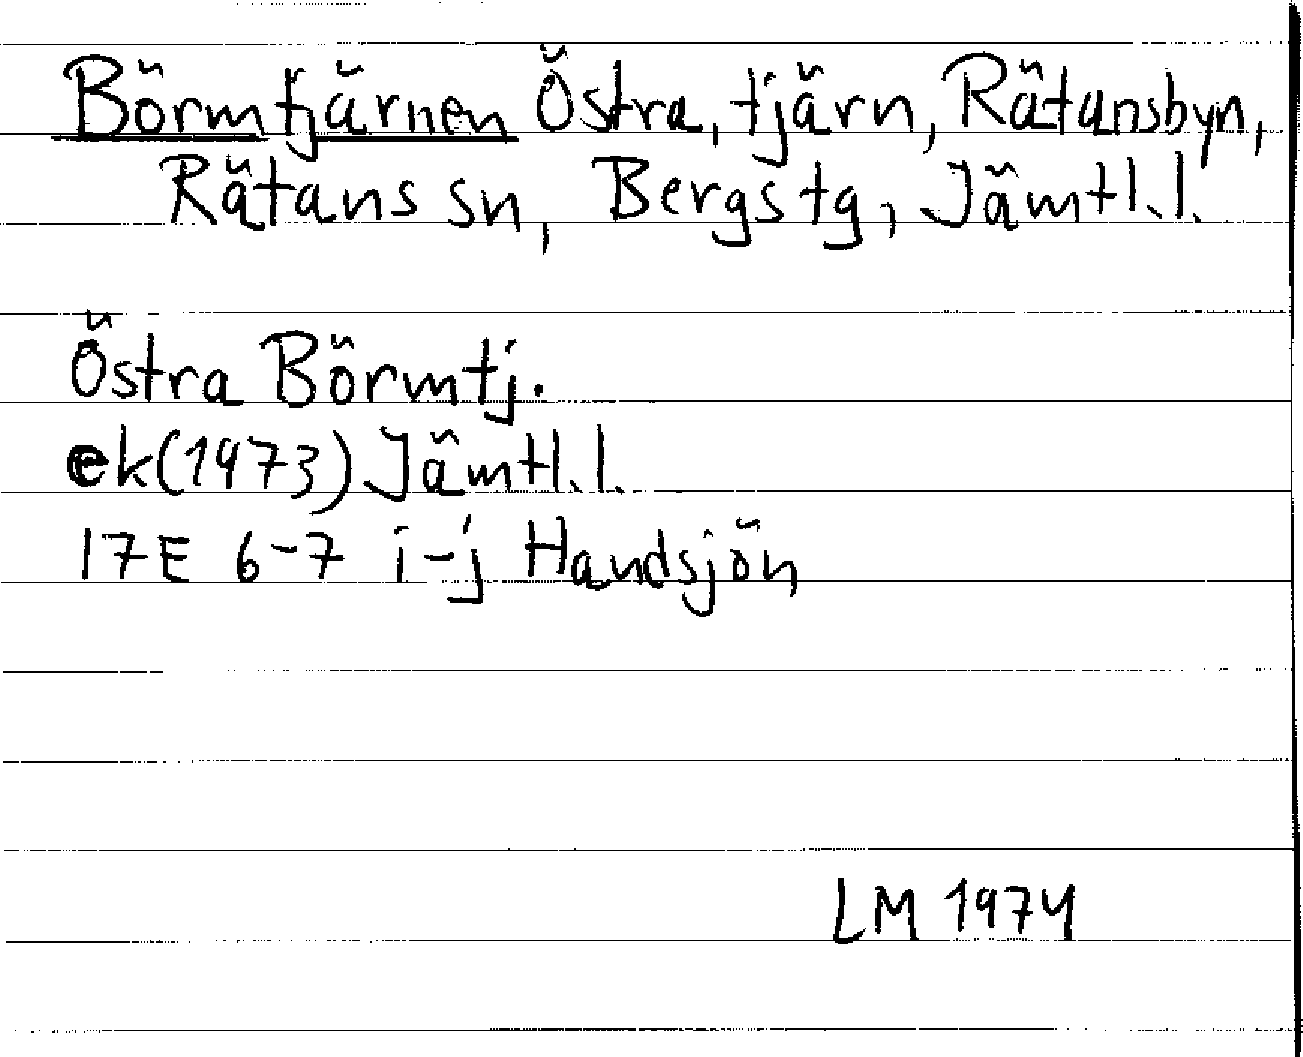 Börmtjärnen Östra, tjärn, Rätansbyn,
Rätans sn, Bergs tg, Jämtl.l.
Östra Börmtj.
ek(1973) Jämtl.l.
17E 6-7 i-j Handsjön
LM 1974